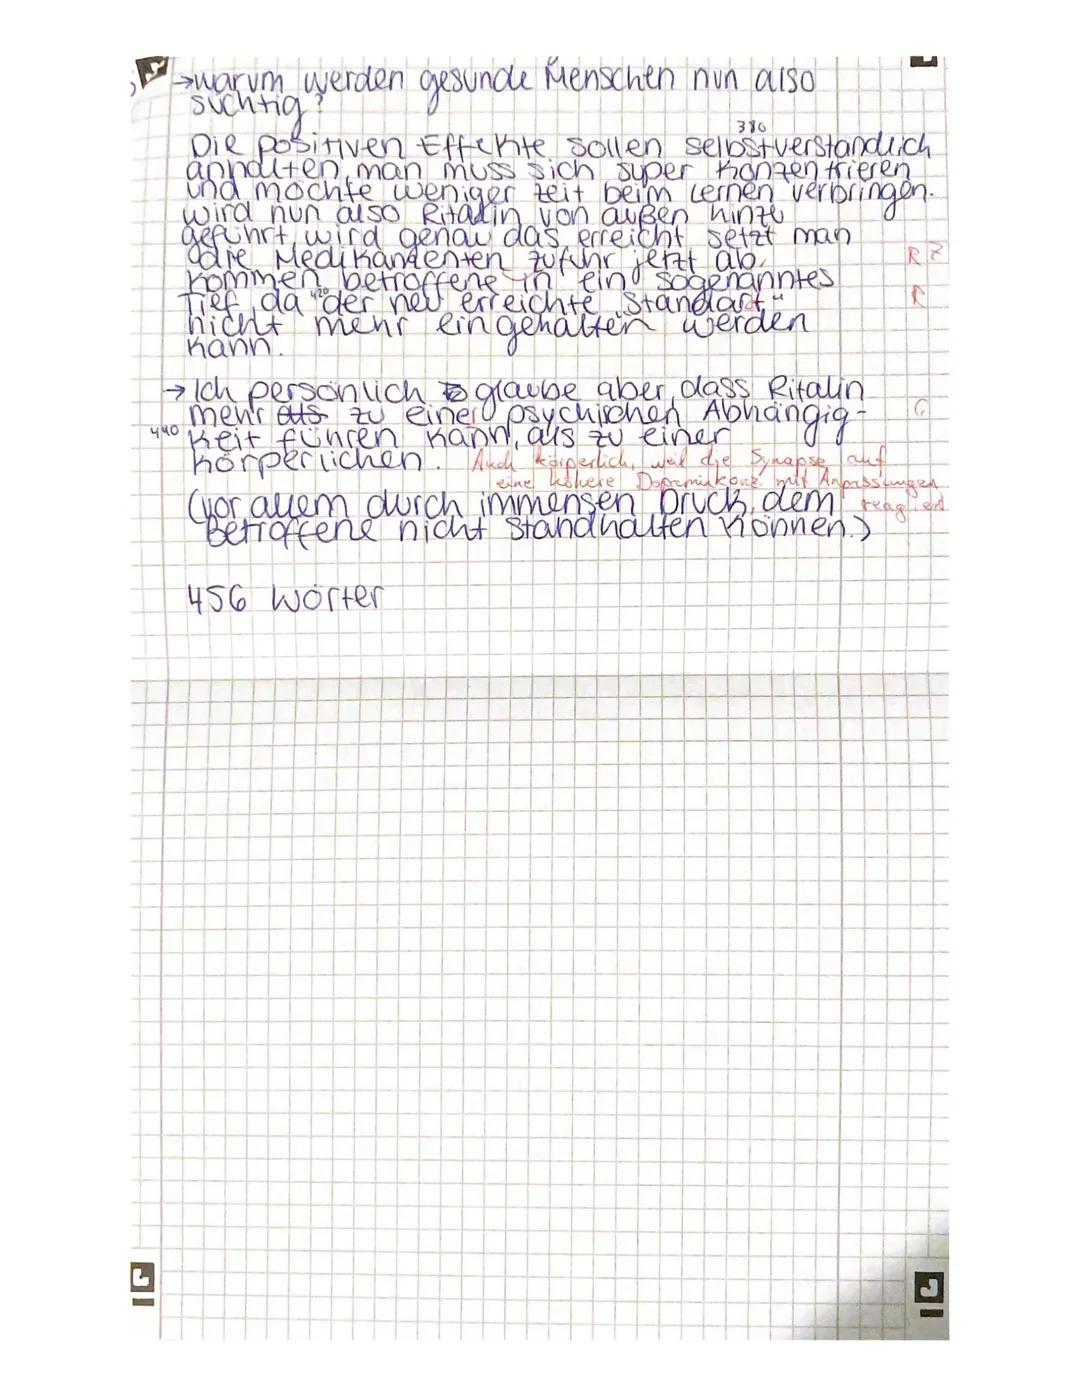 → warum werden gesunde Menschen nun also
süchtig?
380
Die positiven Effekte sollen selbstverständlich
anhalten, man muss sich super konzentrieren
und möchte weniger Zeit beim Lernen verbringen.
Wird nun also Ritalin von außen hinzu
geführt, wird genau das erreicht setzt man
die Medikamenten zufuhr jetzt ab, R Z
kommen betroffene in ein sogenanntes
Tief, da 420 "der neu erreichte Standart" R
nicht mehr eingehalten werden
kann.
→ Ich persönlich glaube aber, dass Ritalin
mehr zu einer psychischen Abhängig- G
440 keit führen kann, als zu einer
körperlichen. Auch körperlich, weil die Synapse auf
eine höhere Dopaminkonz. mit Anpassungen
reagiert
(vor allem durch immensen Druck, dem
Betroffene nicht standhalten können.)
456 Wörter